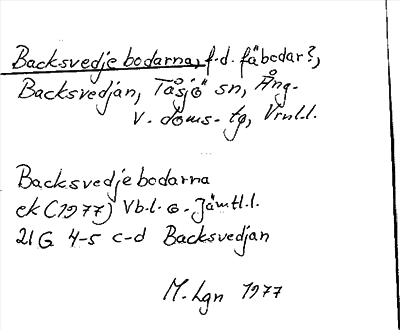 Backsvedjebodarna, f.d. fäbodar?,
Backsvedjan, Tåsjö sn, Ång-
V. doms-tg, Vrnl.l.
Backsvedjebodarna
ek (1977) Vb.l. o. Jämtl.l.
21G 4-5 c-d Backsvedjan
M. Lgn 1977